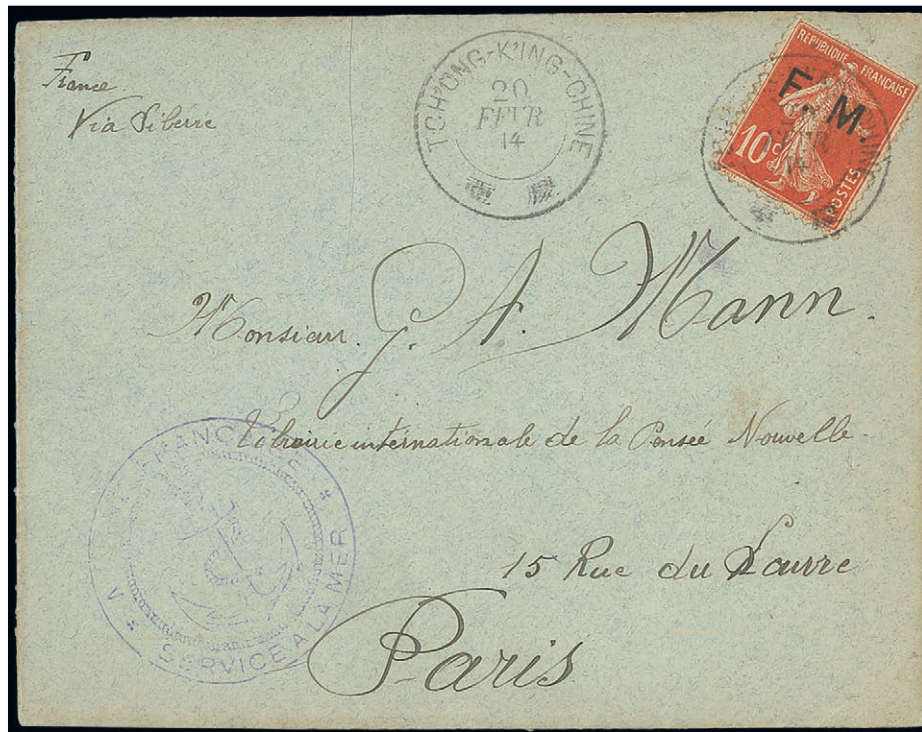 France
Via Siberie
TCH'ONG-K'ING-CHINE
20
FEVR
14
REPUBLIQUE FRANÇAISE
F. M.
10c
POSTES
14
Monsieur. G. A. Mann.
Librairie internationale de la Pensée Nouvelle.
15 Rue du Louvre
Paris
SERVICE A LA MER